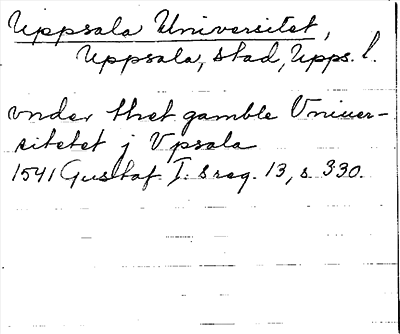 Uppsala Universitet,
Uppsala, stad, Upps. l.
vnder thet gamble Vniuer-
sitetet j Vpsala
1541 Gustaf I: s reg. 13, s 330.